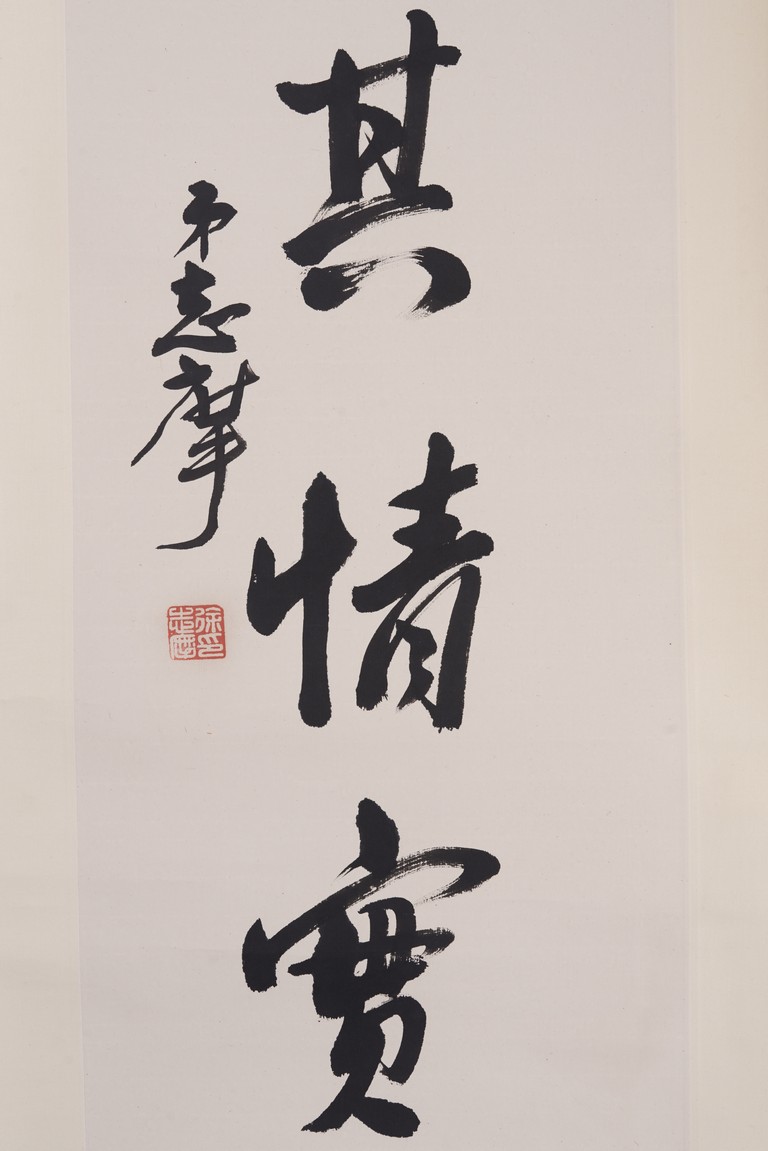 其情實
弟志摩
徐志摩印